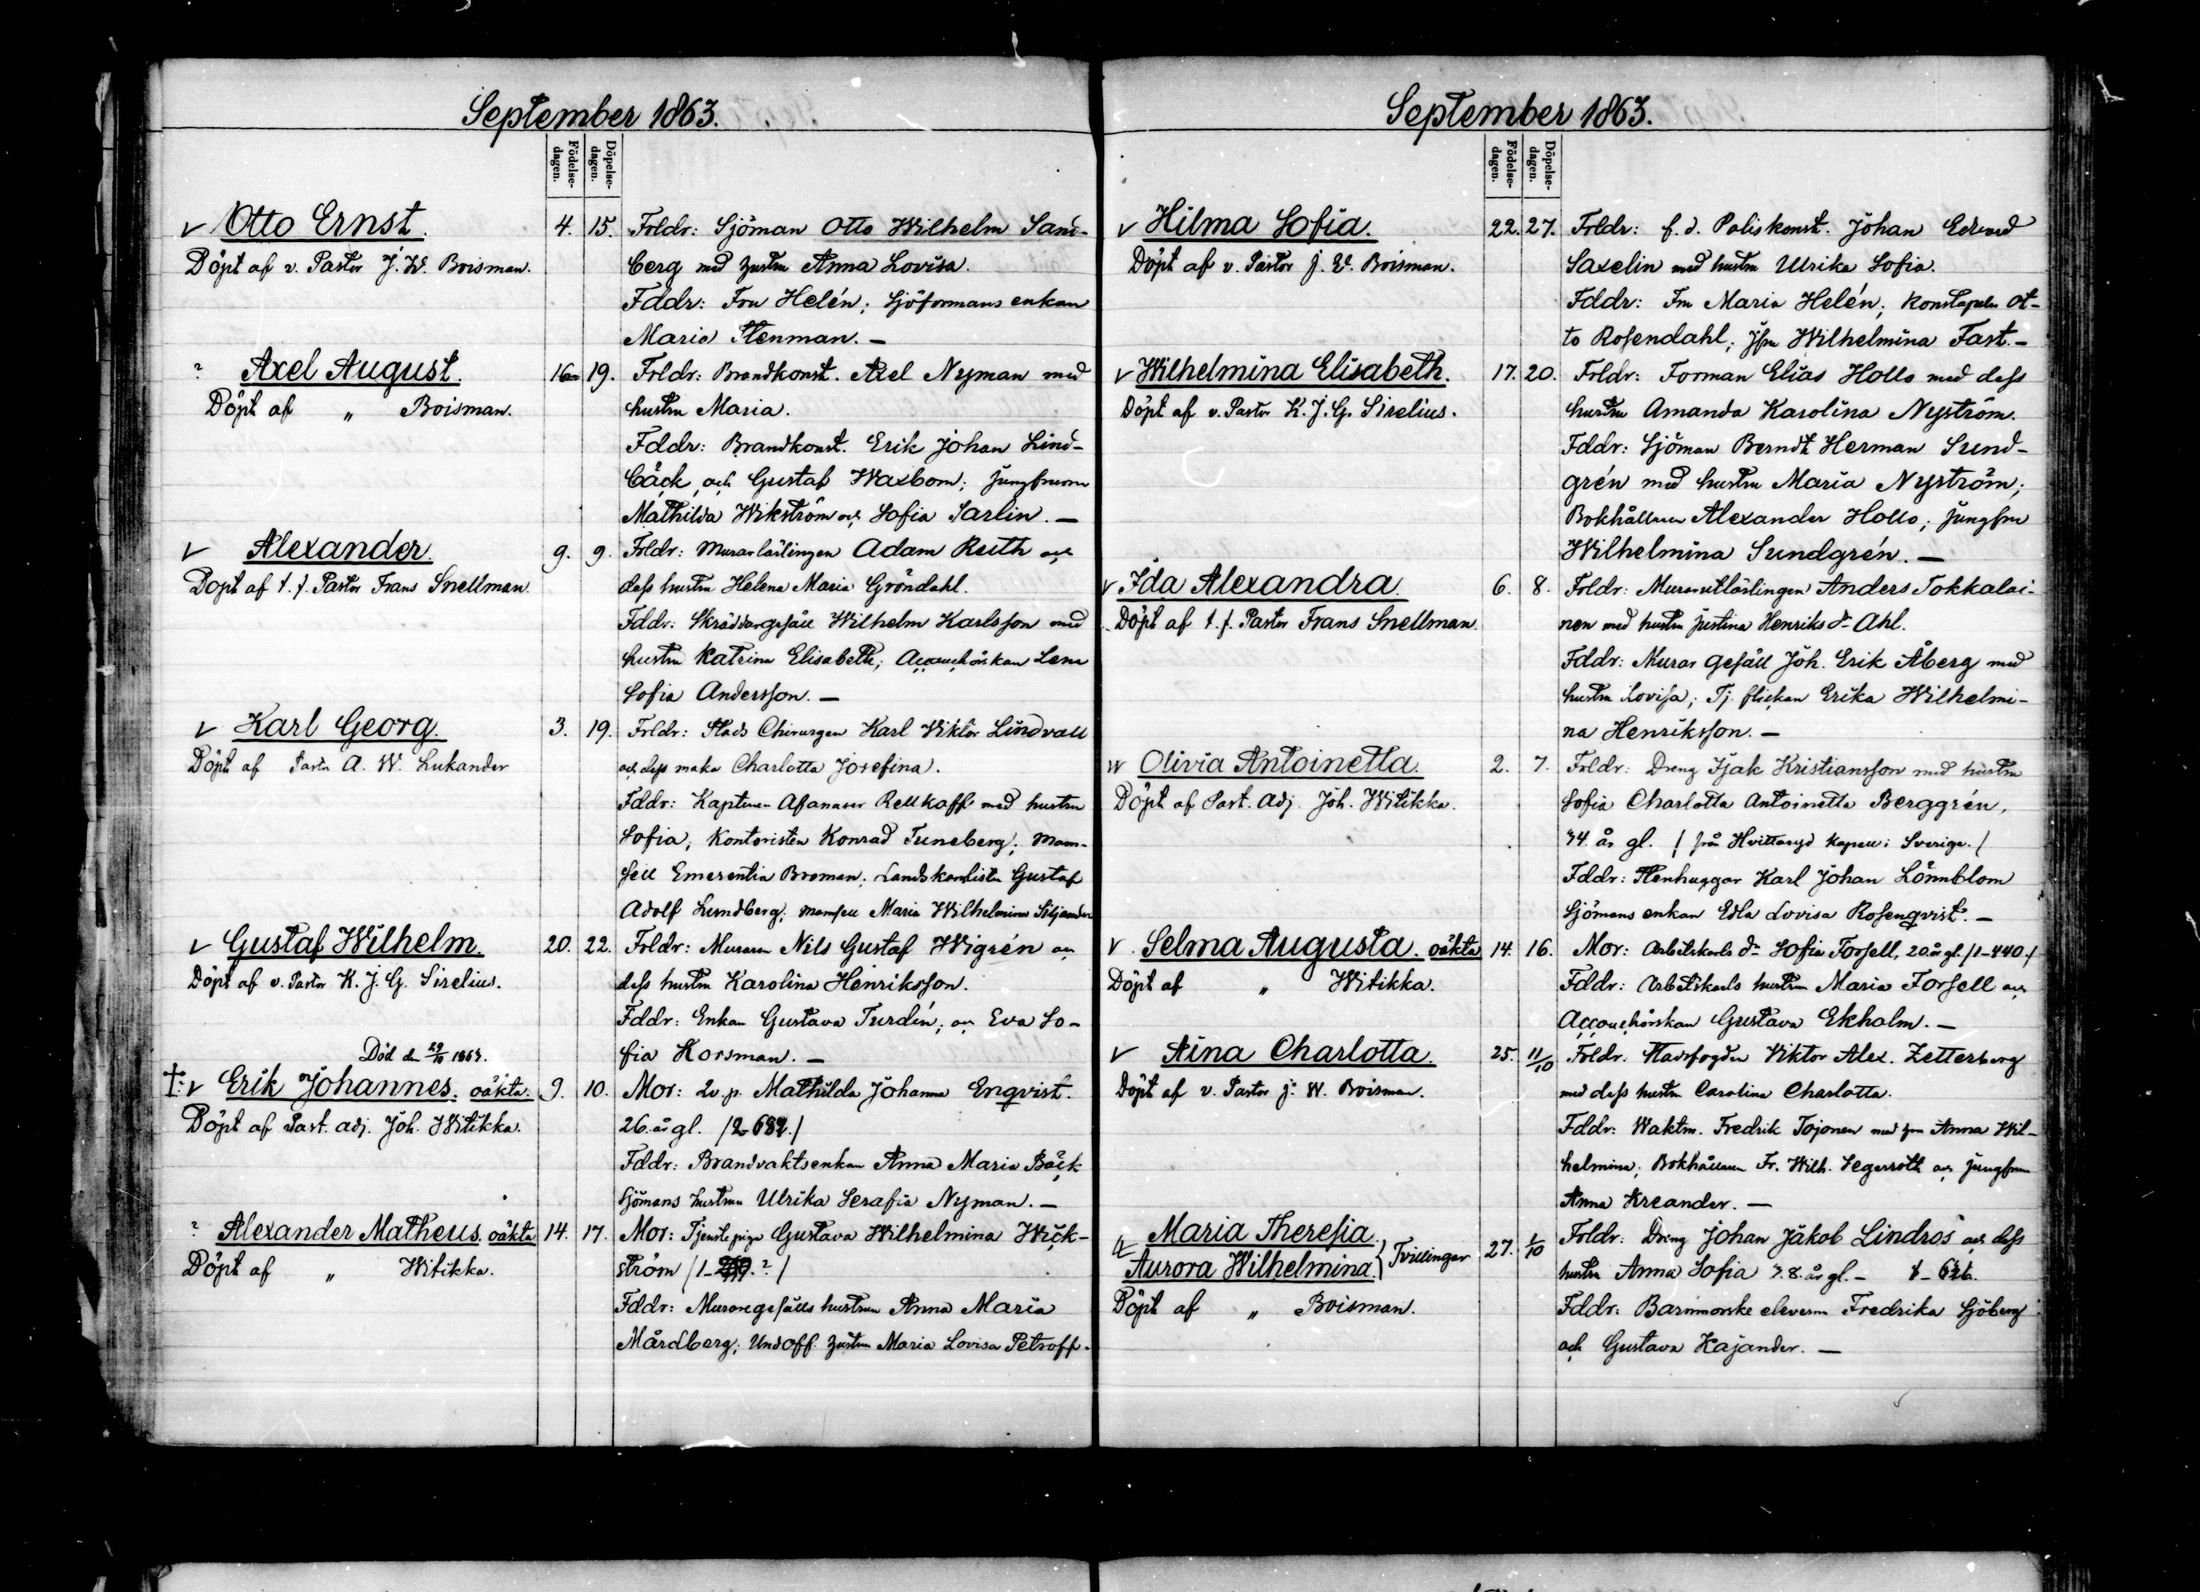 September 1863.
Födelse-dagen.
Döpelse-dagen.
v Otto Ernst. 4. 15. Frldr: Sjöman Otto Wilhelm Sand-
Döpt af v. Pastor J. W. Boisman. berg med hustru Anna Lovisa.
Fddr: Fru Helén; Sjöformans enkan
Maria Stenman. —
? Axel August. 16 19. Frldr: Brandkonst. Axel Nyman med
Döpt af „ Boisman. hustru Maria.
Fddr: Brandkonst. Erik Johan Lind-
bäck och Gustaf Waxbom; Jungfrurna
Mathilda Wikström och Sofia Sarlin. —
v Alexander. 9. 9. Frldr: Murarlärlingen Adam Reith och
Döpt af t. f. Pastor Frans Snellman. dess hustru Helena Maria Gröndahl.
Fddr: Skräddargesäll Wilhelm Karlsson med
hustru Katrina Elisabeth; Accouchörskan Lena
Sofia Andersson. —
v Karl Georg. 3. 19. Frldr: Stads Chirurgen Karl Viktor Lindvall
Döpt af Pastor A. W. Lukander och dess maka Charlotta Josefina.
Fddr: Kaptenen Afanaser Rellkoff med hustru
Sofia; Kontoristen Konrad Tuneberg; Mam-
sell Emerentia Broman; Landskanslisten Gustaf
Adolf Lundberg; mamsell Maria Wilhelmina Siljander
v Gustaf Wilhelm. 20. 22. Frldr: Muraren Nils Gustaf Wigrén och
Döpt af v. Pastor K. J. G. Sirelius. dess hustru Karolina Henriksson.
Fddr: Enkan Gustava Turdén; och Eva So-
Död den 29/10 1863. fia Korsman. —
†: v Erik Johannes. oäkta. 9. 10. Mor: Lv. p. Mathilda Johanna Enqvist.
Döpt af Past. adj. Joh. Witikka. 26. år gl. /2-682./
Fddr: Brandvaktsenkan Anna Maria Bäck
Sjömans hustrun Ulrika Serafia Nyman. —
? Alexander Matheus. oäkta 14. 17. Mor: Tjenstepiga Gustava Wilhelmina Wick-
Döpt af „ Witikka. ström /1- ? /
Fddr: Muraregesälls hustrun Anna Maria
Mårdberg; Undoff. hustru Maria Lovisa Petroff.
September 1863.
Födelse-dagen.
Döpelse-dagen.
v Hilma Sofia. 22. 27. Frldr: f. d. Poliskonst. Johan Edvard
Döpt af v. Pastor J. W. Boisman. Saxelin med hustru Ulrika Sofia.
Fddr: Fru Maria Helén; Konstapeln Ot-
to Rosendahl; Jfru Wilhelmina Fast. —
v Wilhelmina Elisabeth. 17. 20. Frldr: Forman Elias Hollo med dess
Döpt af v. Pastor K. J. G. Sirelius. hustru Amanda Karolina Nyström.
Fddr: Sjöman Berndt Herman Sund-
grén med hustru Maria Nyström;
Bokhållaren Alexander Hollo; Jungfru
Wilhelmina Sundgrén. —
v Ida Alexandra. 6. 8. Frldr: Murarutlärlingen Anders Tokkalai-
Döpt af t. f. Pastor Frans Snellman. nen med hustru Justina Henriks dr Ahl.
Fddr: Murar gesäll Joh. Erik Åberg med
hustru Lovisa; Tj. flickan Erika Wilhelmi-
na Henriksson. —
w Olivia Antoinetta. 2. 7. Frldr: Dreng Isak Kristiansson med hustru
Döpt af Past. Adj. Joh. Witikka. Sofia Charlotta Antoinetta Berggrén,
34 år gl. / från Hvittaryd Kapell i Sverige. /
Fddr: Stenhuggar Karl Johan Lönnblom
Sjömans enkan Edla Lovisa Rosenqvist. —
v Selma Augusta. oäkta 14. 16. Mor: Arbetskarls dr Sofia Forsell, 20. år gl. /1-440./
Döpt af „ Witikka. Fddr: Arbetskarls hustrun Maria Forsell och
Accouchörskan Gustava Ekholm. —
v Aina Charlotta. 25. 11/10 Frldr: Stadsfogden Viktor Alex. Zetterberg
Döpt af v. Pastor J. W. Boisman. med dess hustru Carolina Charlotta.
Fddr: Waktm. Fredrik Tojonen med fru Anna Wil-
helmina; Bokhållaren Fr. Wilh. Segerroth och Jungfrun
Anna Kreander. —
Maria Theresia.
Aurora Wilhelmina. } Tvillingar 27. 1/10 Frldr: Dreng Johan Jakob Lindros och dess
hustru Anna Sofia 38. år gl. —
Döpt af „ Boisman. Fddr: Barnmorske eleverna Fredrika Sjöberg
och Gustava Kajander. —